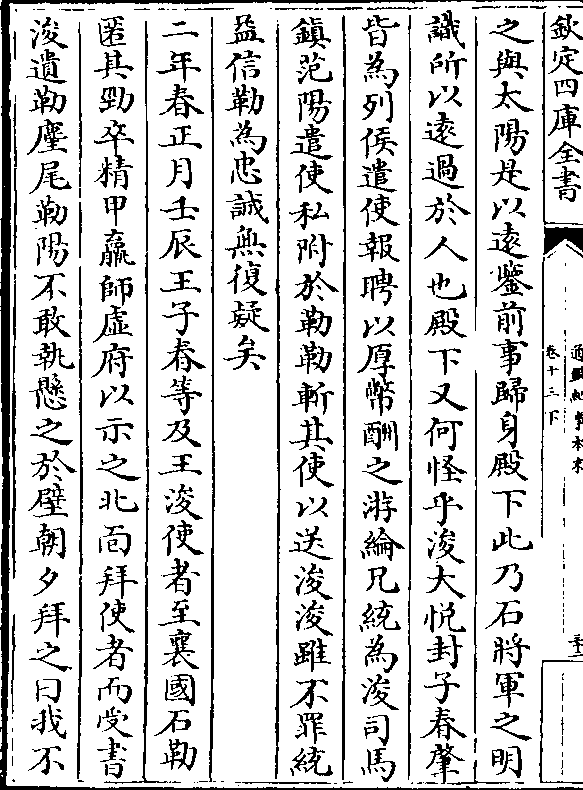 欽定四庫全書
通鑑紀事本末
卷十三下
之與太陽是以遠鑒前事歸身殿下此乃石將軍之明
識所以遠過於人也殿下又何怪乎浚大悦封子春肇
皆為列侯遣使報聘以厚幣酬之游綸兄統為浚司馬
鎮范陽遣使私附於勒勒斬其使以送浚浚雖不罪統
益信勒為忠誠無復疑矣
二年春正月壬辰王子春等及王浚使者至襄國石勒
匿其勁卒精甲羸師虚府以示之北面拜使者而受書
浚遺勒麈尾勒陽不敢執懸之於壁朝夕拜之曰我不